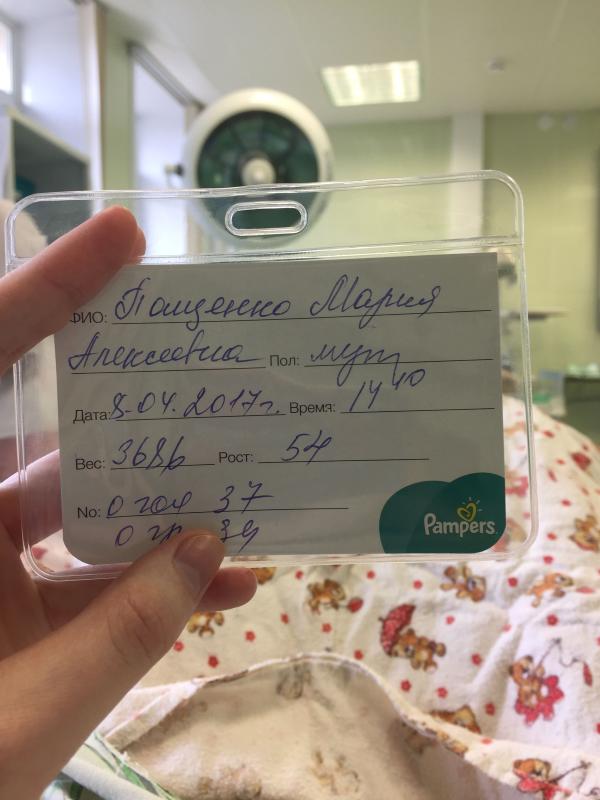 ФИО: Пащенко Мария
Алексеевна Пол: муж
Дата: 8.04.2017г. Время: 14 40
Вес: 3686 Рост: 54
No: О гол 37
О гр 34
Pampers